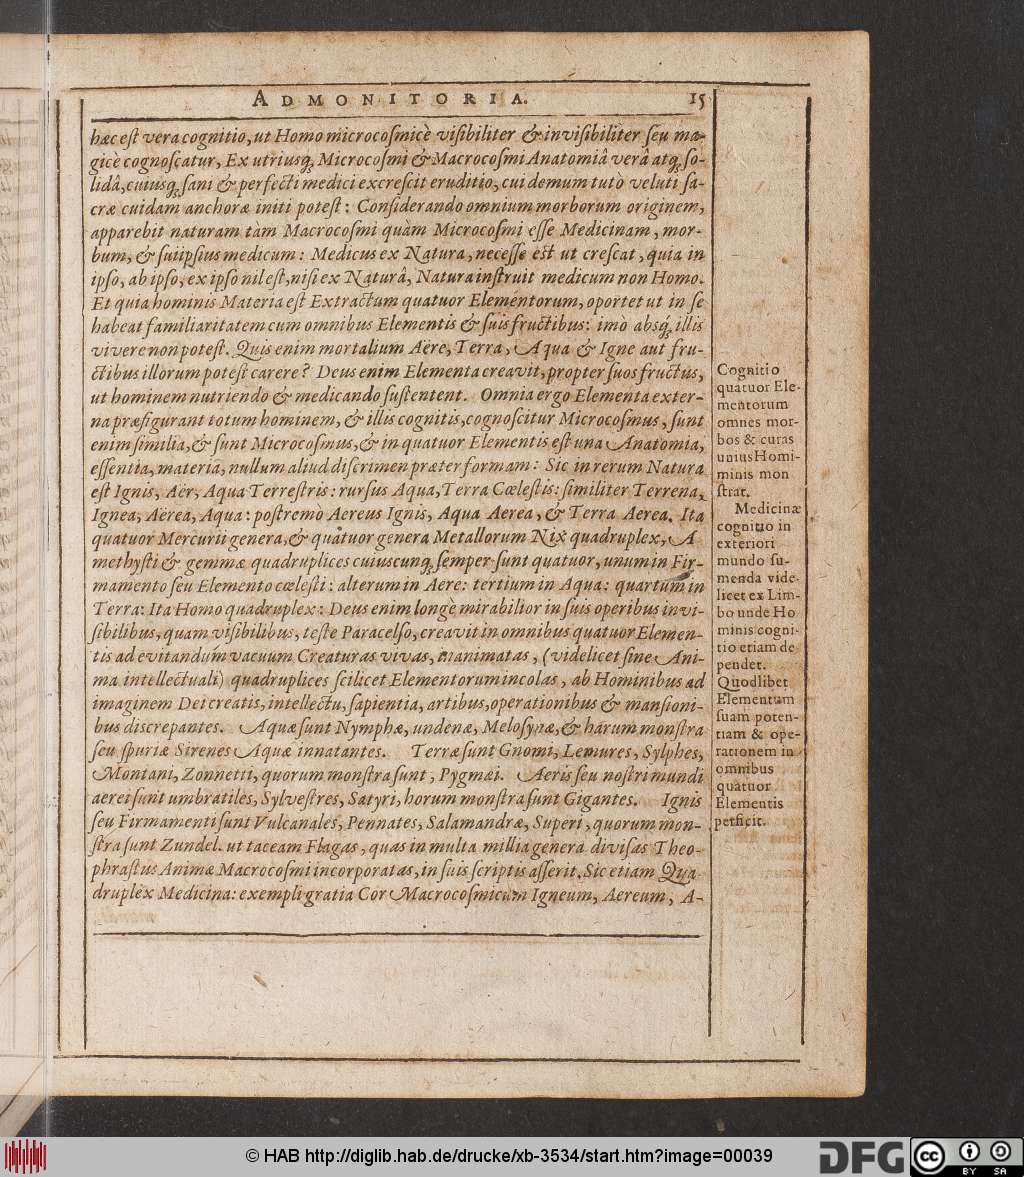 ADMONITORIA. 15
hæc est vera cognitio, ut Homo microcosmicè visibiliter & invisibiliter seu ma-
gicè cognoscatur, Ex utriusq; Microcosmi & Macrocosmi Anatomiâ verâ atq; so-
lidâ, cuiusq; sani & perfecti medici excrescit eruditio, cui demum tutò veluti sa-
cræ cuidam anchoræ initi potest: Considerando omnium morborum originem,
apparebit naturam tam Macrocosmi quàm Microcosmi esse Medicinam, mor-
bum, & suiipsius medicum: Medicus ex Natura, necesse est ut crescat, quia in
ipso, ab ipso, ex ipso nil est, nisi ex Naturâ, Natura instruit medicum non Homo.
Et quia hominis Materia est Extractum quatuor Elementorum, oportet ut in se
habeat familiaritatem cum omnibus Elementis & suis fructibus: imò absq; illis
vivere non potest. Quis enim mortalium Aëre, Terra, Aqua & Igne aut fru-
ctibus illorum potest carere? Deus enim Elementa creavit, propter suos fructus,
ut hominem nutriendo & medicando sustentent. Omnia ergo Elementa exter-
na præfigurant totum hominem, & illis cognitis, cognoscitur Microcosmus, sunt
enim similia, & sunt Microcosmus, & in quatuor Elementis est una Anatomia,
essentia, materia, nullum aliud discrimen præter formam: Sic in rerum Natura
est Ignis, Aër, Aqua Terrestris: rursus Aqua, Terra Cœlestis: similiter Terrena,
Ignea, Aërea, Aqua: postremo Aereus Ignis, Aqua Aerea, & Terra Aerea. Ita
quatuor Mercurii genera, & quatuor genera Metallorum Nix quadruplex, A
methysti & gemmæ quadruplices cuiuscunq; semper sunt quatuor, unum in Fir-
mamento seu Elemento cœlesti: alterum in Aere: tertium in Aqua: quartum in
Terra: Ita Homo quadruplex: Deus enim longè mirabilior in suis operibus invi-
sibilibus, quam visibilibus, teste Paracelso, creavit in omnibus quatuor Elemen-
tis ad evitandum vacuum Creaturas vivas, inanimatas, (videlicet sine Ani-
ma intellectuali) quadruplices scilicet Elementorum incolas, ab Hominibus ad
imaginem Dei creatis, intellectu, sapientia, artibus, operationibus & mansioni-
bus discrepantes. Aquæ sunt Nymphæ, undenæ, Melosynæ, & harum monstra
seu spuriæ Sirenes Aquæ innatantes. Terræ sunt Gnomi, Lemures, Sylphes,
Montani, Zonnetti, quorum monstra sunt, Pygmæi. Aeris seu nostri mundi
aerei sunt umbratiles, Sylvestres, Satyri, horum monstra sunt Gigantes. Ignis
seu Firmamenti sunt Vulcanales, Pennates, Salamandræ, Superi, quorum mon-
stra sunt Zundel. ut taceam Flagas, quas in multa millia genera divisas Theo-
phrastus Animæ Macrocosmi incorporatas, in suis scriptis asserit, Sic etiam Qua
druplex Medicina: exempli gratia Cor Macrocosmicum Igneum, Aereum, A-
Cognitio
quatuor Ele-
mentorum
omnes mor-
bos & curas
unius Homi-
minis mon
strat.
Medicinæ
cognitio in
exteriori
mundo su-
menda vide-
licet ex Lim-
bo unde Ho
minis cogni-
tio etiam de
pendet.
Quodlibet
Elementum
suam poten-
tiam & ope-
rationem in
omnibus
quatuor
Elementis
perficit.
© HAB http://diglib.hab.de/drucke/xb-3534/start.htm?image=00039
DFG
cc BY SA